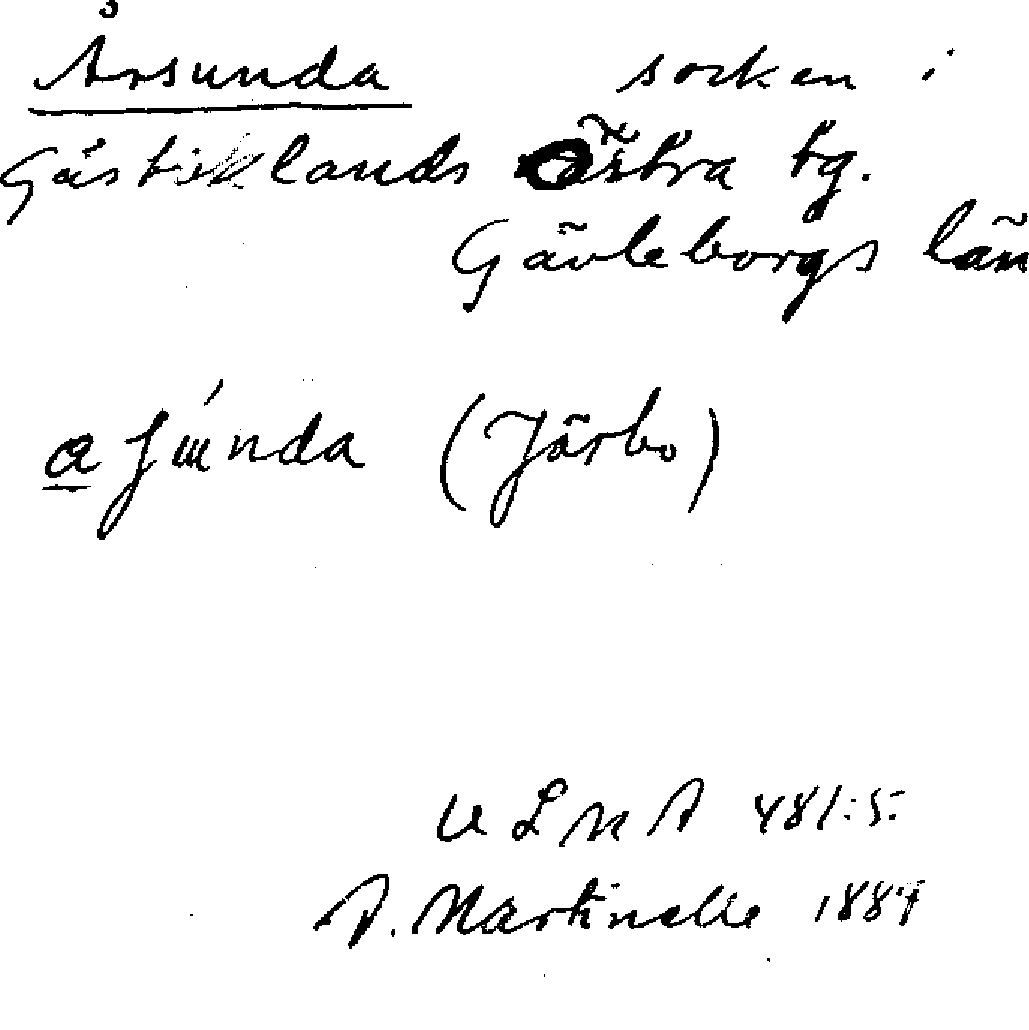 Årsunda socken i
Gästriklands östra tg.
Gävleborgs län
(Järbo)
ULMA 481:5.
A. Martinelle 1884